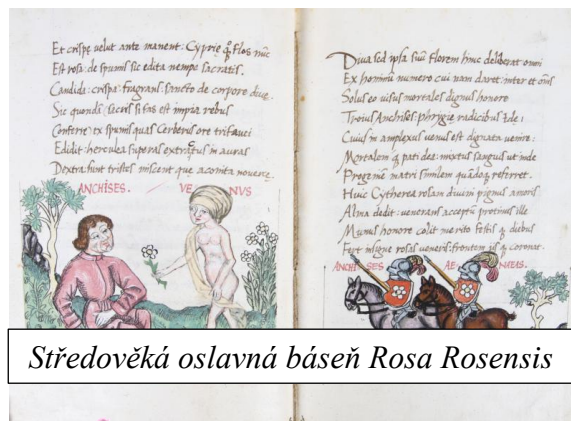 Et crispę velut ante manent: Cyprię q; Flos nūc
Est rosa: de spumis sic edita nempe sacratis.
Candida: crispa: fragrans: sancto de corpore divę.
Sic quondā: sacris si fas est impia rebus
Conferre: ex spumis quas Cerberus ore trifauci
Edidit: herculea superas extractus in auras
Dextra: sunt tristes miscent que aconita novercę.
ANCHISES. VENVS
Diva sed ipsa suū florem hinc deliberat omni
Ex hominū numero cui nam daret: inter et omīs
Solus eo visus mortales dignus honore
Troius Anchises: phrygię radicibus idę:
Cuius in amplexus venus est dignata venire:
Mortalem q; pati dea: mixtus sanguis ut inde
Progeniē matri similem quādoq; referret.
Huic Cytherea rosam divini pignus amoris
Alma dedit: venerans acceptū protinus ille
Munus honore colit merito: festis q; diebus
Fert insigne rosas veneris: frontem q; coronat.
ANCHISES AENAEAS.
Středověká oslavná báseň Rosa Rosensis